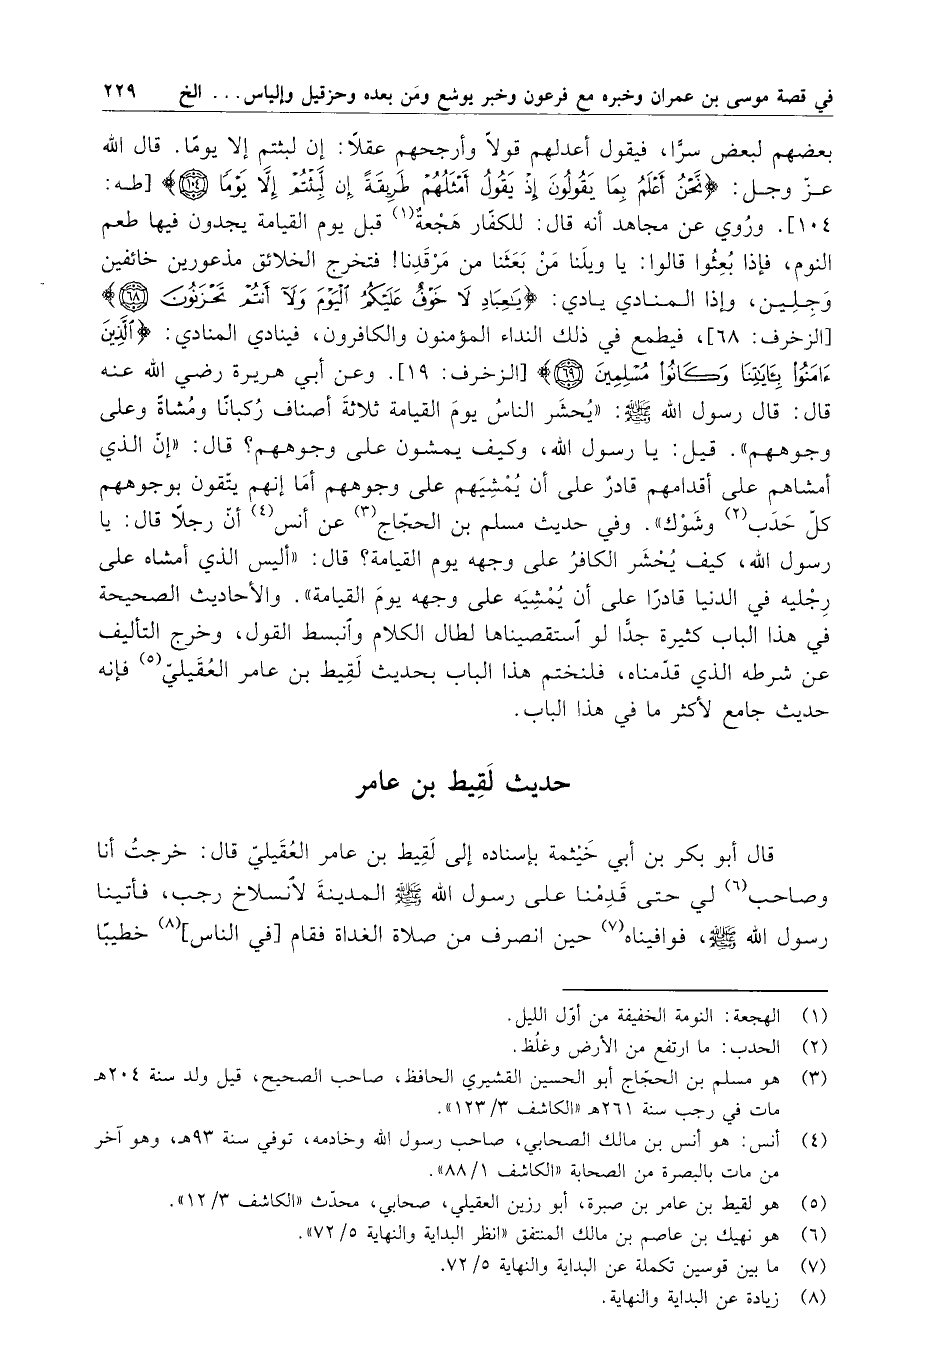 في قصة موسى بن عمران وخبره مع فرعون وخبر يوشع ومَن بعده وحزقيل وإلياس... الخ ٢٢٩
بعضهم لبعض سرًّا، فيقول أعدلهم قولاً وأرجحهم عقلًا: إن لبثتم إلا يومًا. قال الله
عزّ وجل: ﴿نَّحْنُ أَعْلَمُ بِمَا يَقُولُونَ إِذْ يَقُولُ أَمْثَلُهُمْ طَرِيقَةً إِن لَّبِثْتُمْ إِلَّا يَوْمًا ﴿١٠٤﴾﴾ [طه:
١٠٤]. ورُوي عن مجاهد أنه قال: للكفّار هَجْعةٌ(١) قبل يوم القيامة يجدون فيها طعم
النوم، فإذا بُعِثُوا قالوا: يا ويلَنا مَنْ بَعَثَنا من مَرْقَدِنا! فتخرج الخلائق مذعورين خائفين
وَجِلِين، وإذا المنادي يادي: ﴿يَٰعِبَادِ لَا خَوْفٌ عَلَيْكُمُ ٱلْيَوْمَ وَلَآ أَنتُمْ تَحْزَنُونَ ﴿٦٨﴾﴾
[الزخرف: ٦٨]، فيطمع في ذلك النداء المؤمنون والكافرون، فينادي المنادي: ﴿ٱلَّذِينَ
ءَامَنُوا۟ بِـَٔايَٰتِنَا وَكَانُوا۟ مُسْلِمِينَ ﴿٦٩﴾﴾ [الزخرف: ١٩]. وعن أبي هريرة رضي الله عنه
قال: قال رسول الله ﷺ: «يُحشَر الناسُ يومَ القيامة ثلاثةَ أصناف رُكبانًا ومُشاةً وعلى
وجوههم». قيل: يا رسول الله، وكيف يمشون على وجوههم؟ قال: «إنّ الذي
أمشاهم على أقدامهم قادرٌ على أن يُمْشِيَهم على وجوههم أمَا إنهم يتّقون بوجوههم
كلّ حَدَب(٢) وشَوْك». وفي حديث مسلم بن الحجّاج(٣) عن أنس(٤) أنّ رجلًا قال: يا
رسول الله، كيف يُحْشَر الكافرُ على وجهه يوم القيامة؟ قال: «أليس الذي أمشاه على
رِجْليه في الدنيا قادرًا على أن يُمْشِيَه على وجهه يومَ القيامة». والأحاديث الصحيحة
في هذا الباب كثيرة جدًّا لو ٱستقصيناها لطال الكلام وٱنبسط القول، وخرج التأليف
عن شرطه الذي قدّمناه، فلنختم هذا الباب بحديث لَقِيط بن عامر العُقَيليّ(٥) فإنه
حديث جامع لأكثر ما في هذا الباب.
حديث لَقِيط بن عامر
قال أبو بكر بن أبي خَيْثمة بإسناده إلى لَقِيط بن عامر العُقَيليّ قال: خرجتُ أنا
وصاحب(٦) لي حتى قَدِمْنا على رسول الله ﷺ المدينةَ لٱنسلاخ رجب، فأتينا
رسول الله ﷺ، فوافيناه(٧) حين انصرف من صلاة الغداة فقام [في الناس](٨) خطيبًا
(١) الهجعة: النومة الخفيفة من أوّل الليل.
(٢) الحدب: ما ارتفع من الأرض وغلُظ.
(٣) هو مسلم بن الحجّاج أبو الحسين القشيري الحافظ، صاحب الصحيح، قيل ولد سنة ٢٠٤هـ
مات في رجب سنة ٢٦١هـ «الكاشف ٣/ ١٢٣».
(٤) أنس: هو أنس بن مالك الصحابي، صاحب رسول الله وخادمه، توفي سنة ٩٣هـ، وهو آخر
من مات بالبصرة من الصحابة «الكاشف ١/ ٨٨».
(٥) هو لقيط بن عامر بن صبرة، أبو رزين العقيلي، صحابي، محدّث «الكاشف ٣/ ١٢».
(٦) هو نهيك بن عاصم بن مالك المنتفق «انظر البداية والنهاية ٥/ ٧٢».
(٧) ما بين قوسين تكملة عن البداية والنهاية ٥/ ٧٢.
(٨) زيادة عن البداية والنهاية.